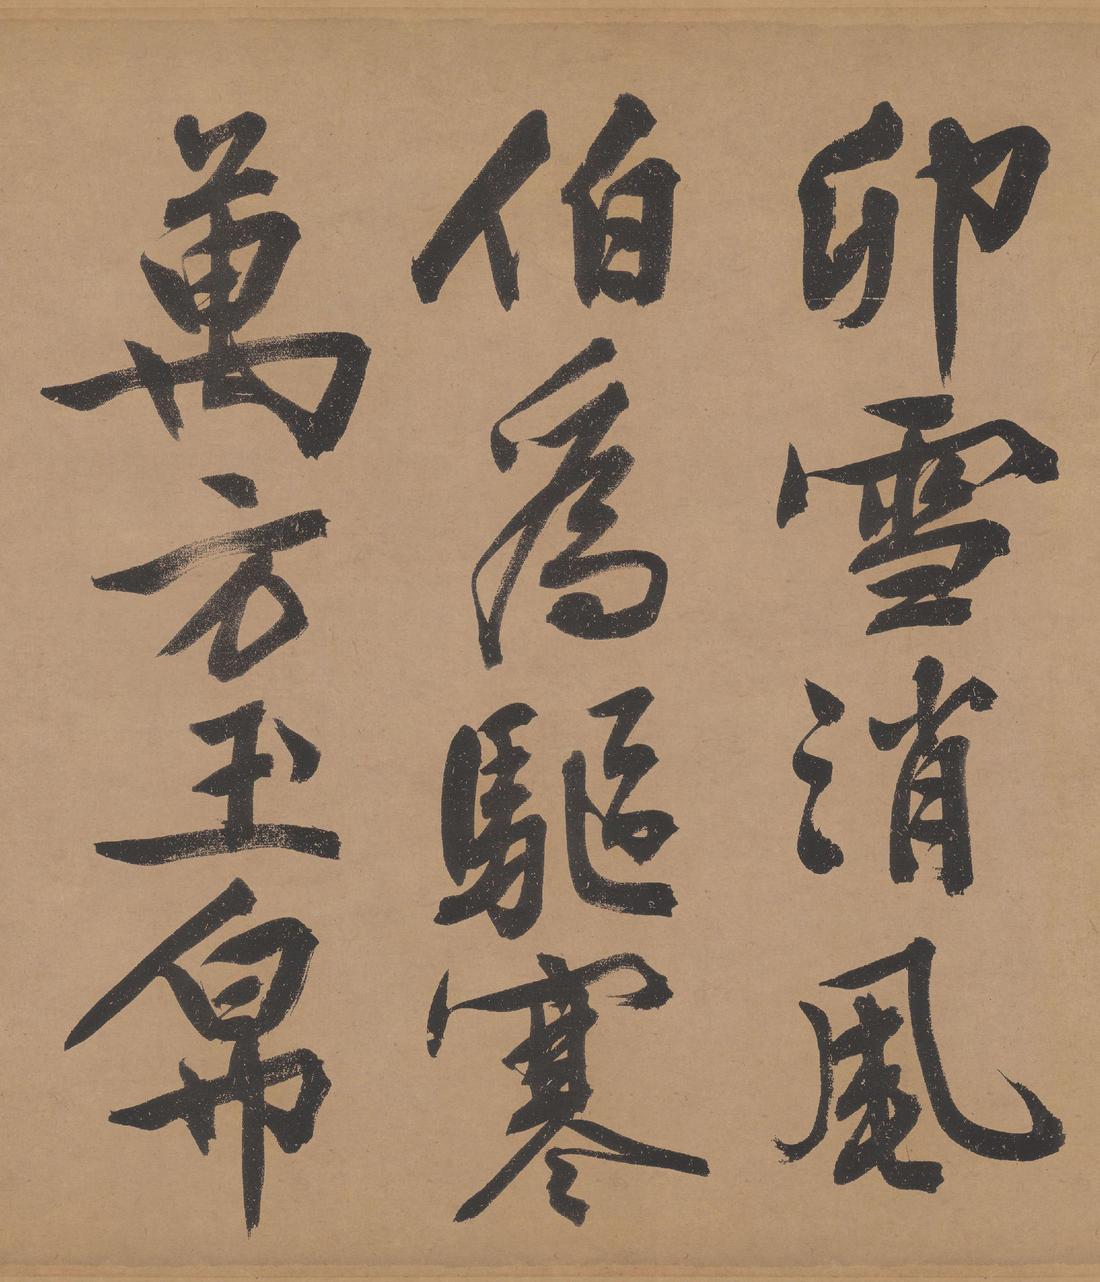 卯雪消風
伯爲驅寒
萬方玉帛